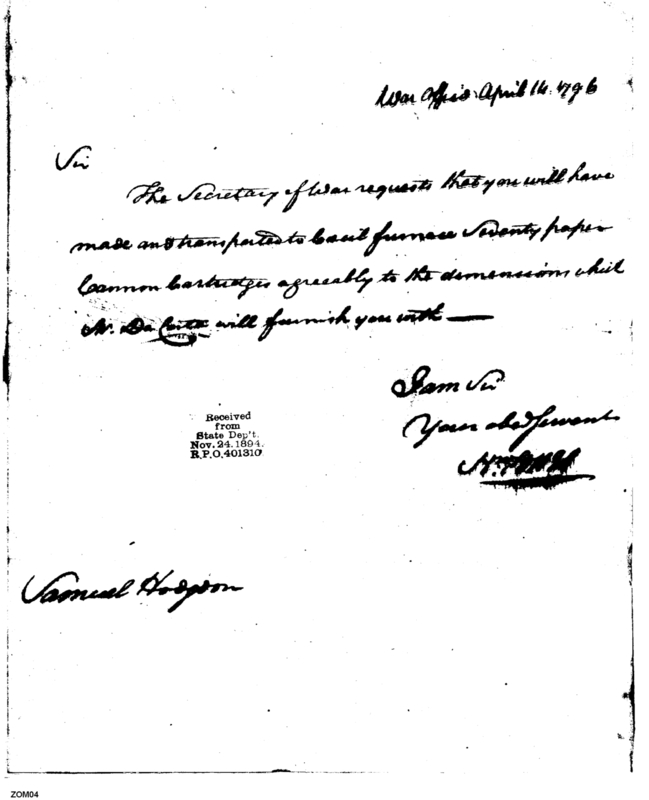 War Office April 14. 1796
Sir
The Secretary of War requests that you will have
made and transported to Cecil furnace Seventy paper
Cannon Cartridges agreeably to the dimensions which
Mr. Da Costa will furnish you with —
I am Sir
Your obed Servant
Received
from
State Dep't.
Nov. 24. 1894.
R.P.O. 401310
Samuel Hodgdon
ZOM04